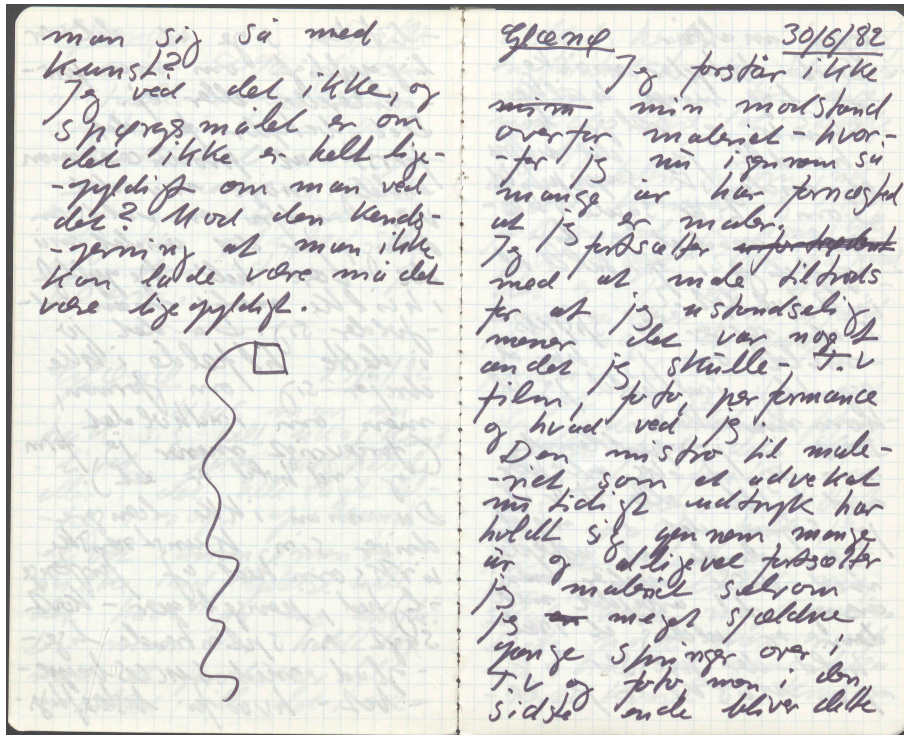 man sig så med
kunst?
Jeg ved det ikke, og
spørgsmålet er om
det ikke er helt lige-
-gyldigt om man ved
det? Mod den kends-
-gerning at man ikke
kan lade være må det
være ligegyldigt.
Glænø 30/6/82
Jeg forstår ikke
min min modstand
overfor maleriet - hvor-
-for jeg nu igennem så
mange år har fornægted
at jeg er maler.
Jeg fortsætter
med at male tiltrods
for at jeg ustandselig
mener det var noget
andet jeg skulle - T.V
film, foto, performance
og hvad ved jeg.
Den mistro til male-
-riet som et advekat
nutidigt udtryk har
holdt sig gennem mange
år og alligevel fortsætter
jeg maleriet selvom
jeg en meget sjældne
gange springer over i
T.V og foto men i den
sidste ende bliver dette